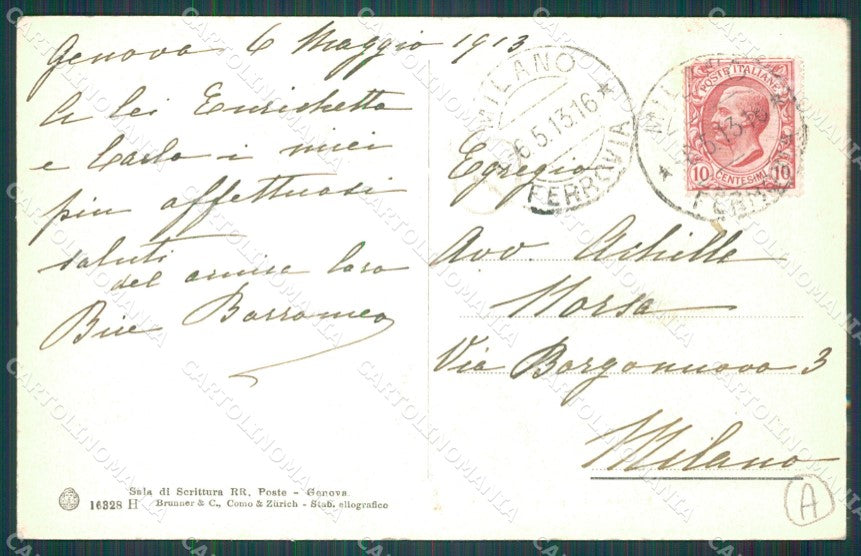 Genova 6 Maggio 1913
A lei Enrichetta
e Carlo i miei
più affettuosi
saluti
del amica loro
Bice Borromeo
Egregio
Avv. Achille
Morsa
Via Borgonuovo 3
Milano
MILANO
6.5.13.16
FERROVIA
MILANO
FERROVIA
POSTE ITALIANE
10 CENTESIMI 10
Sala di Scrittura RR. Poste - Genova
16328 H Brunner & C., Como & Zürich - Stab. eliografico
A
CARTOLINOMANIA